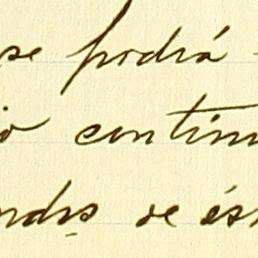 se podrá
io contin
ndos se és